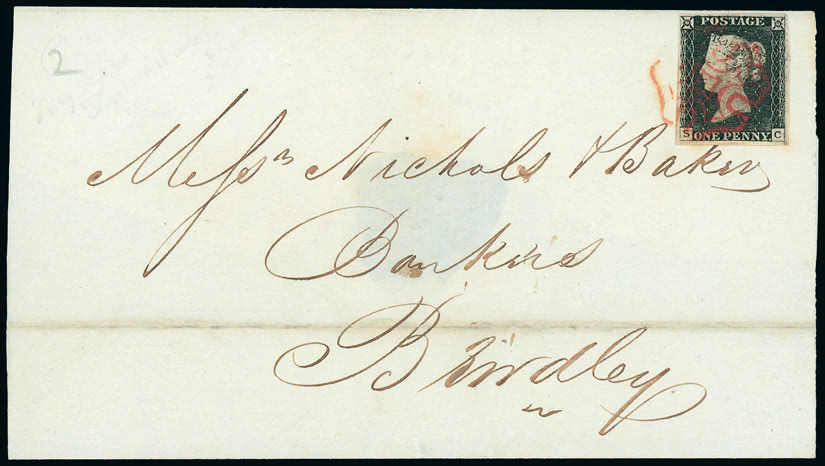 2
POSTAGE
S ONE PENNY C
Messrs Nichols & Baker
Bankers
Bewdley